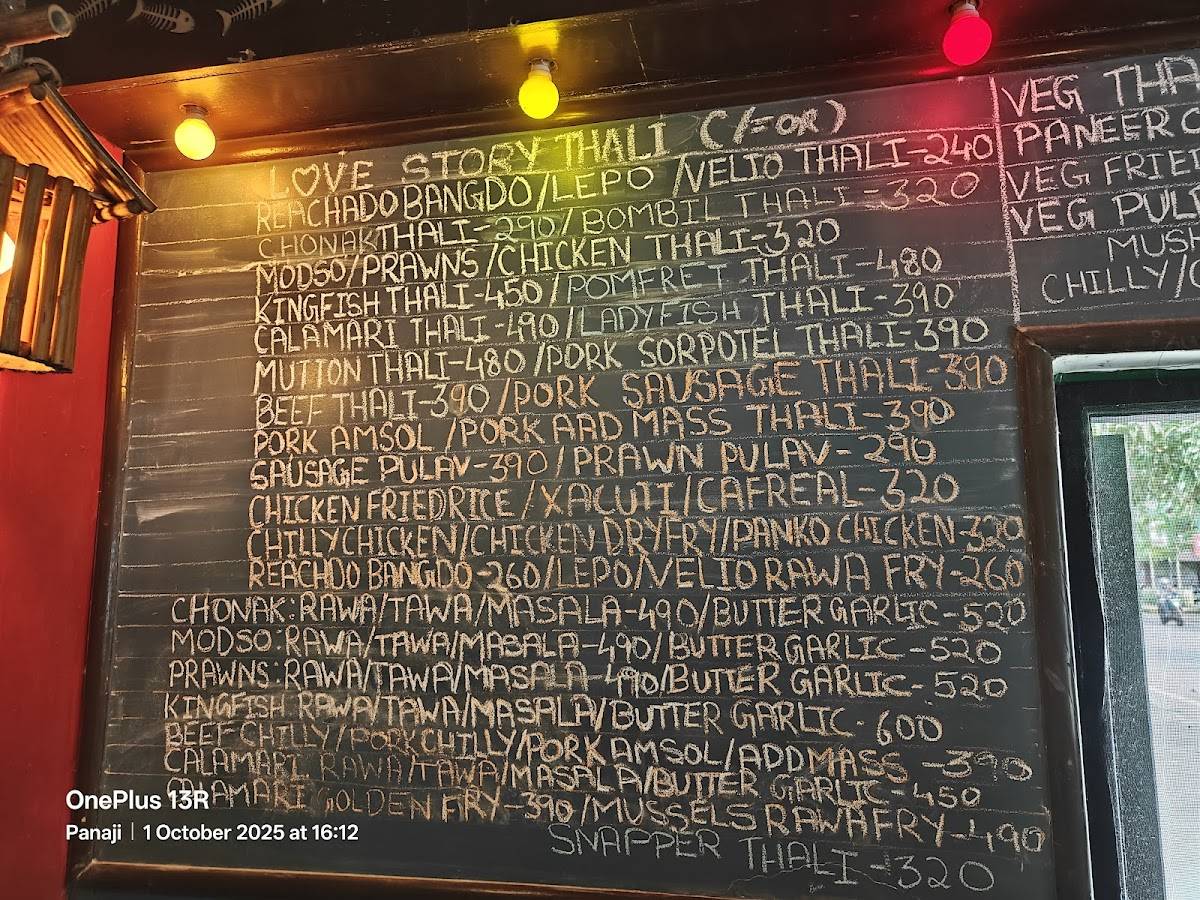 LOVE STORY THALI (/=OR)
REACHADO BANGDO/LEPO /VELIO THALI-240
CHONAK THALI-290/BOMBIL THALI-320
MODSO/PRAWNS/CHICKEN THALI-320
KINGFISH THALI-450/POMFRET THALI-480
CALAMARI THALI-490/LADYFISH THALI-390
MUTTON THALI-480/PORK SORPOTEL THALI-390
BEEF THALI-390/PORK SAUSAGE THALI-390
PORK AMSOL/PORK AAD MASS THALI-390
SAUSAGE PULAV-390/PRAWN PULAV-290
CHICKEN FRIEDRICE/XACUTI/CAFREAL-320
CHILLY CHICKEN/CHICKEN DRYFRY/PANKO CHICKEN-320
REACHDO BANGDO-260/LEPO/VELIO RAWA FRY-260
CHONAK:RAWA/TAWA/MASALA-490/BUTTER GARLIC-520
MODSO:RAWA/TAWA/MASALA-490/BUTTER GARLIC-520
PRAWNS:RAWA/TAWA/MASALA-490/BUTTER GARLIC-520
KINGFISH RAWA/TAWA/MASALA/BUTTER GARLIC-600
BEEF CHILLY/PORK CHILLY/PORK AMSOL/ADDMASS-390
CALAMARI RAWA/TAWA/MASALA/BUTTER GARLIC-450
CALAMARI GOLDEN FRY-390/MUSSELS RAWAFRY-490
SNAPPER THALI-320
VEG THA
PANEER C
VEG FRIED
VEG PUL
MUSH
CHILLY/
OnePlus 13R
Panaji | 1 October 2025 at 16:12